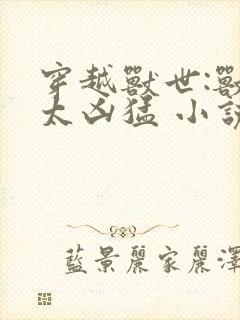 穿越獸世:獸
太凶猛 小說
藍景麗家麗澤